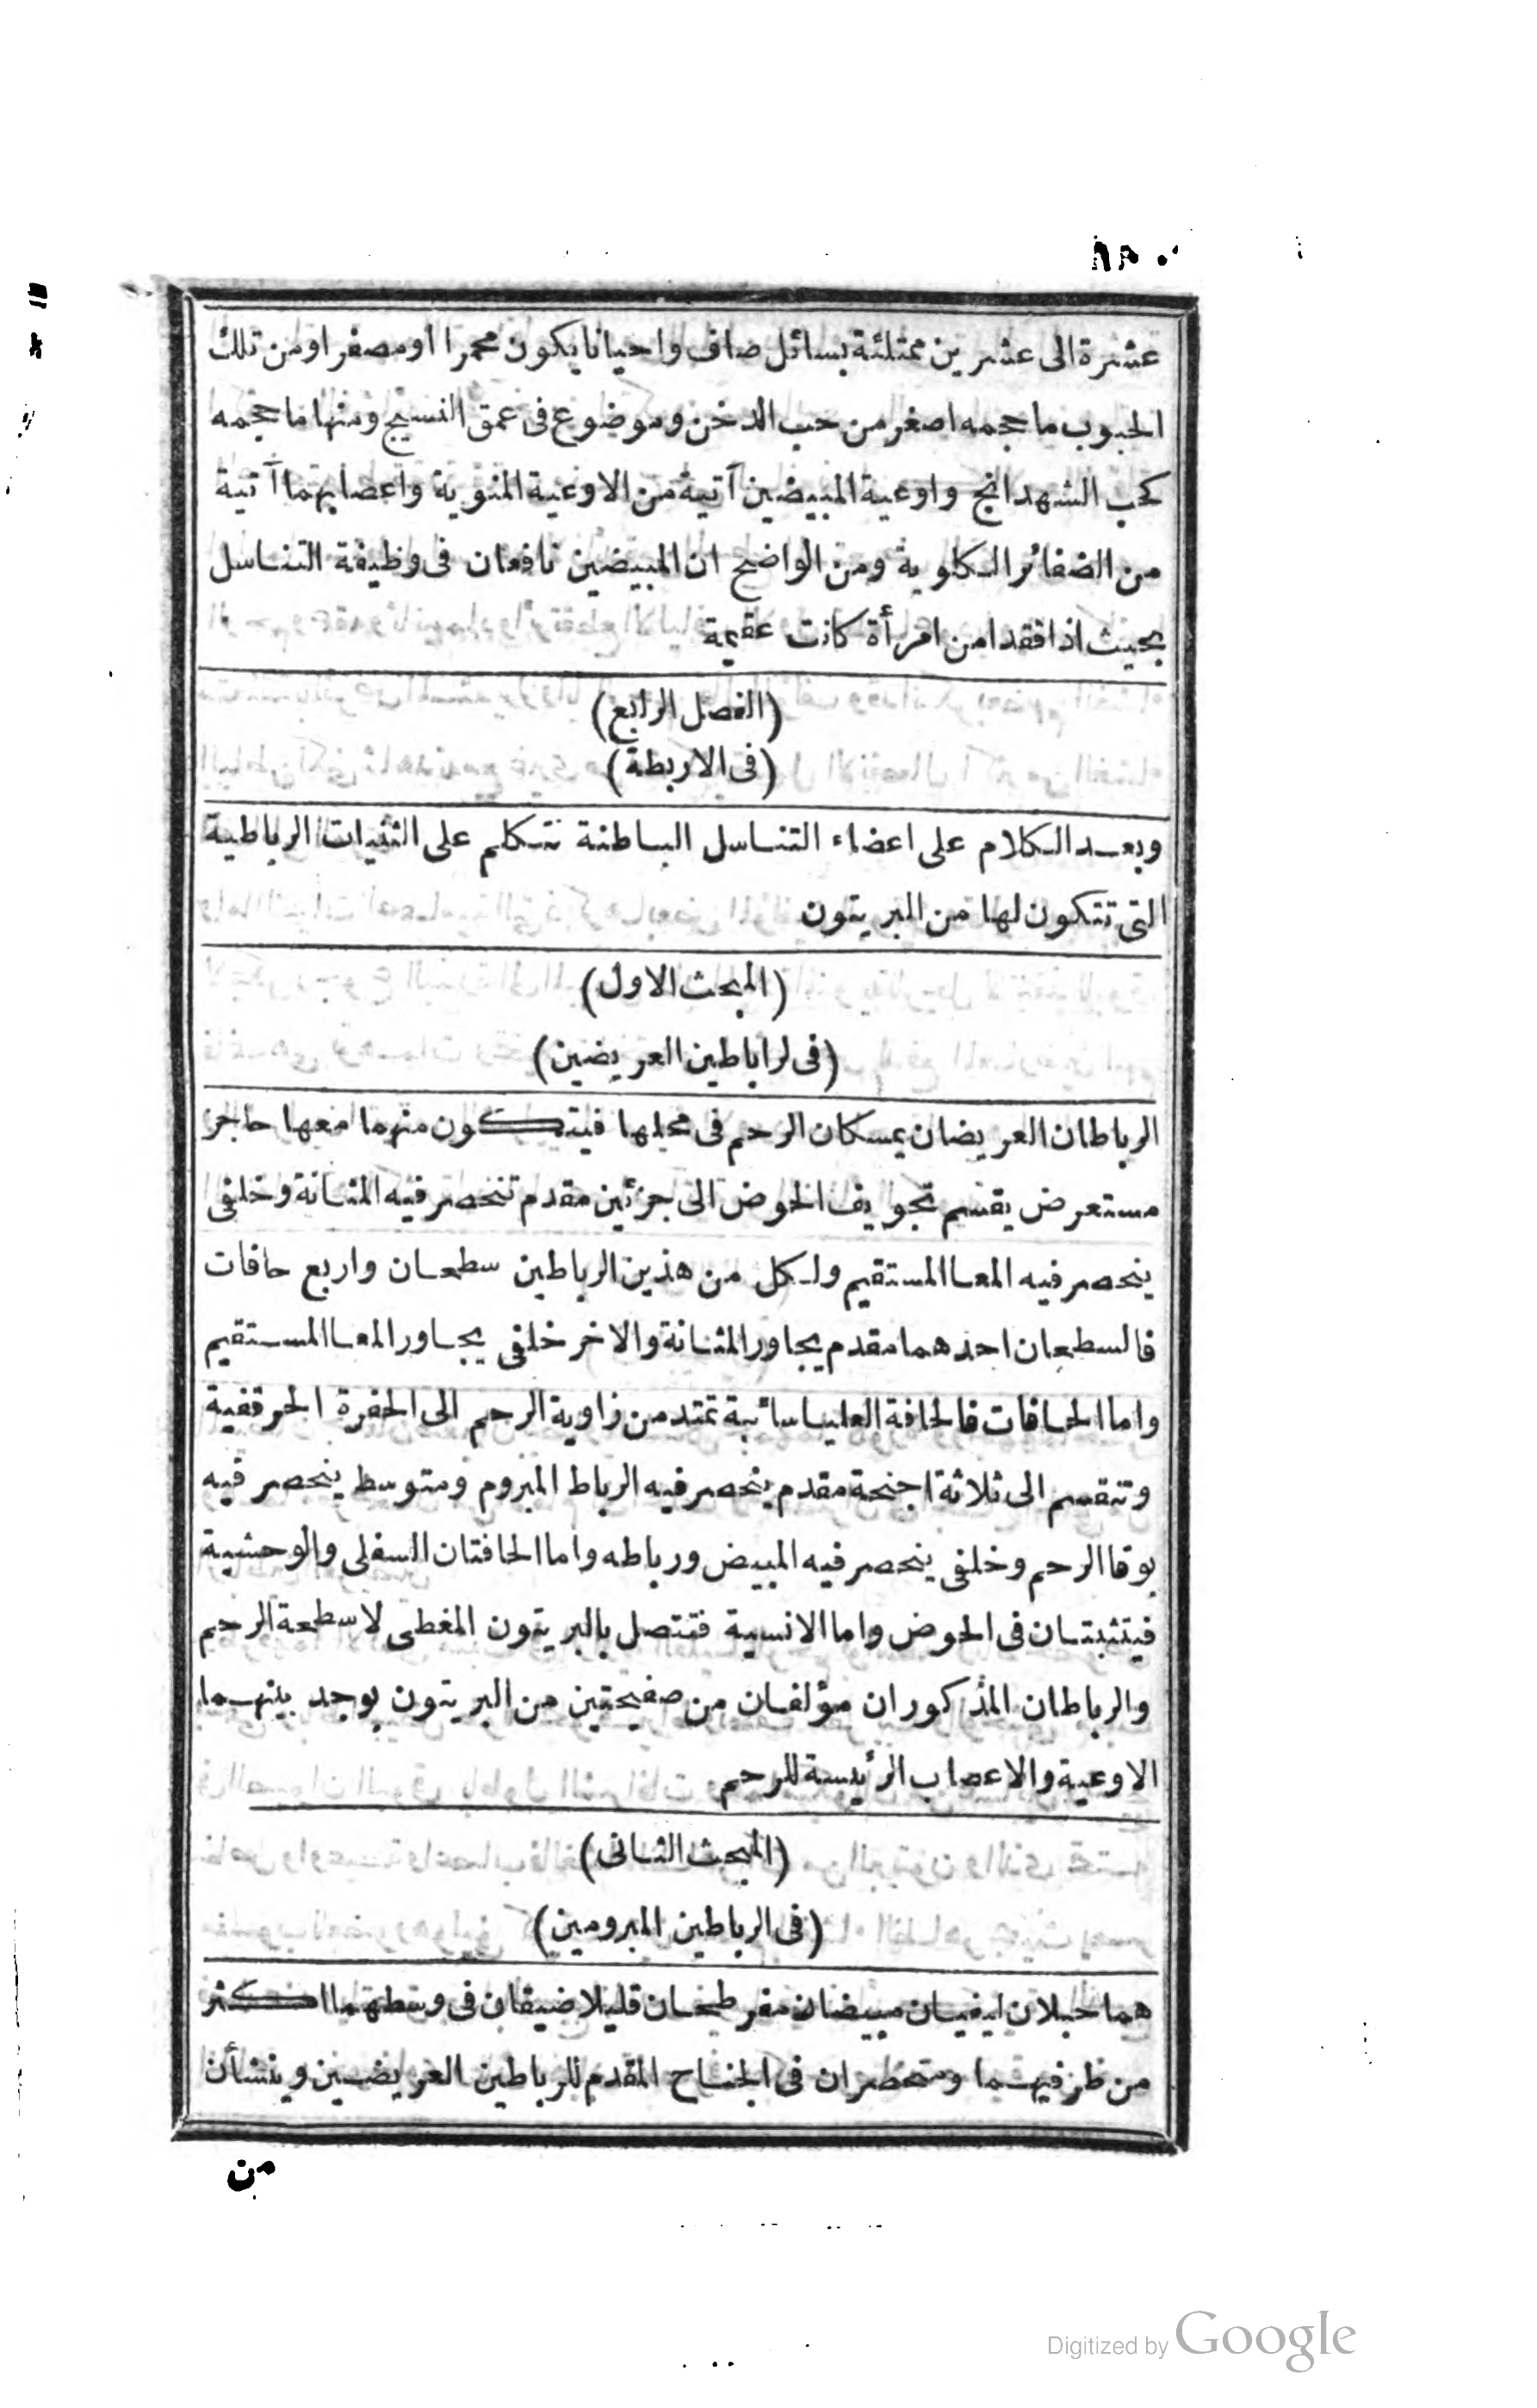 عشرة الى عشرين ممتلئة بسائل صاف واحيانا يكون محمرا او مصفرا ومن تلك
الحبوب ما حجمه اصغر من حب الدخن وموضوع فى عمق النسيج ومنها ما حجمه
كحب الشهدانج واوعية المبيضين آتية من الاوعية المنوية واعصابهما آتية
من الضفائر الكلوية ومن الواضح ان المبيضين نافعان فى وظيفة التناسل
بحيث اذا فقدا من امرأة كانت عقيمة
(الفصل الرابع)
(فى الاربطة)
وبعد الكلام على اعضاء التناسل الباطنة نتكلم على الثنيات الرباطية
التى تتكون لها من البريتون
(المبحث الاول)
(فى لراباطين العريضين)
الرباطان العريضان يمسكان الرحم فى محلها فيتكون منهما معها حاجز
مستعرض يقسم تجويف الحوض الى جزئين مقدم تنحصر فيه المثانة وخلفى
ينحصر فيه المعا المستقيم ولكل من هذين الرباطين سطحان واربع حافات
فالسطحان احدهما مقدم يجاور المثانة والاخر خلفى يجاور المعا المستقيم
واما الحافات فالحافة العليا سائبة تمتد من زاوية الرحم الى الحفرة الحرقفية
وتنقسم الى ثلاثة اجنحة مقدم ينحصر فيه الرباط المبروم ومتوسط ينحصر فيه
بوقا الرحم وخلفى ينحصر فيه المبيض ورباطه واما الحافتان السفلى والوحشية
فيتثبتان فى الحوض واما الانسية فتتصل بالبريتون المغطى لاسطحة الرحم
والرباطان المذكوران مؤلفان من صفيحتين من البريتون يوجد بينهما
الاوعية والاعصاب الرئيسة للرحم
(المبحث الثانى)
(فى الرباطين المبرومين)
هما حبلان ليفيان مبيضان مفرطحان قليلا ضيقان فى وسطهما اكثر
من طرفيهما ومنحصران فى الجناح المقدم للرباطين العريضين وينشأن
من
Digitized by Google